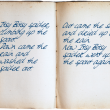 Itsy Bitsy spider,
climbing up the
spout
Down came the
rain and
washed the
spider out
Out came the sun
and dried up all
the rain
Now Itsy Bitsy
spider went up
the spout
again!